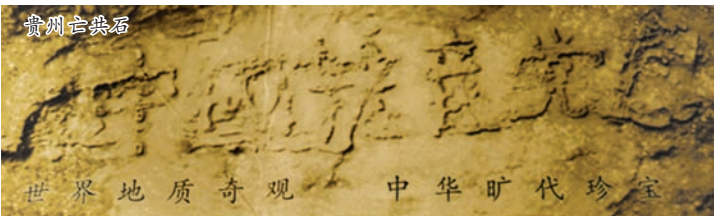 贵州亡共石
中國共産党亡
世界地质奇观 中华旷代珍宝